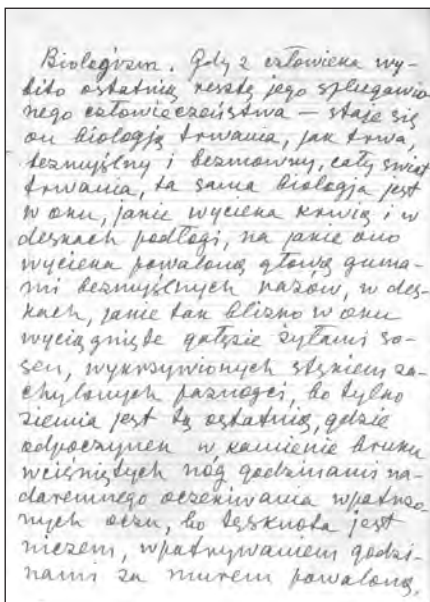 Biologizm. Gdy z człowieka wy-
bito ostatnią resztę jego splugawio-
nego człowieczeństwa — staje się
on biologją trwania, jak trwa,
bezmyślny i bezmowny, cały świat
trwania, ta sama biologja jest
w oku, jakie wycieka krwią i w
deskach podłogi, na jakie oko
wycieka powaloną głową guma-
mi bezmyślnych razów, w des-
kach, jakie tak blizko w oku
wyciągnięte gałęzie żyłami so-
sen, wykrzywionych stękiem za-
chylonych paznogci, bo tylko
ziemia jest tą ostatnią, gdzie
odpoczynek w kamienie bruku
wciśniętych nóg godzinami na-
daremnego oczekiwania wpatrzo-
nych oczu, bo tęsknota jest
niczem, wpatrywaniem godzi-
nami za murem powaloną.